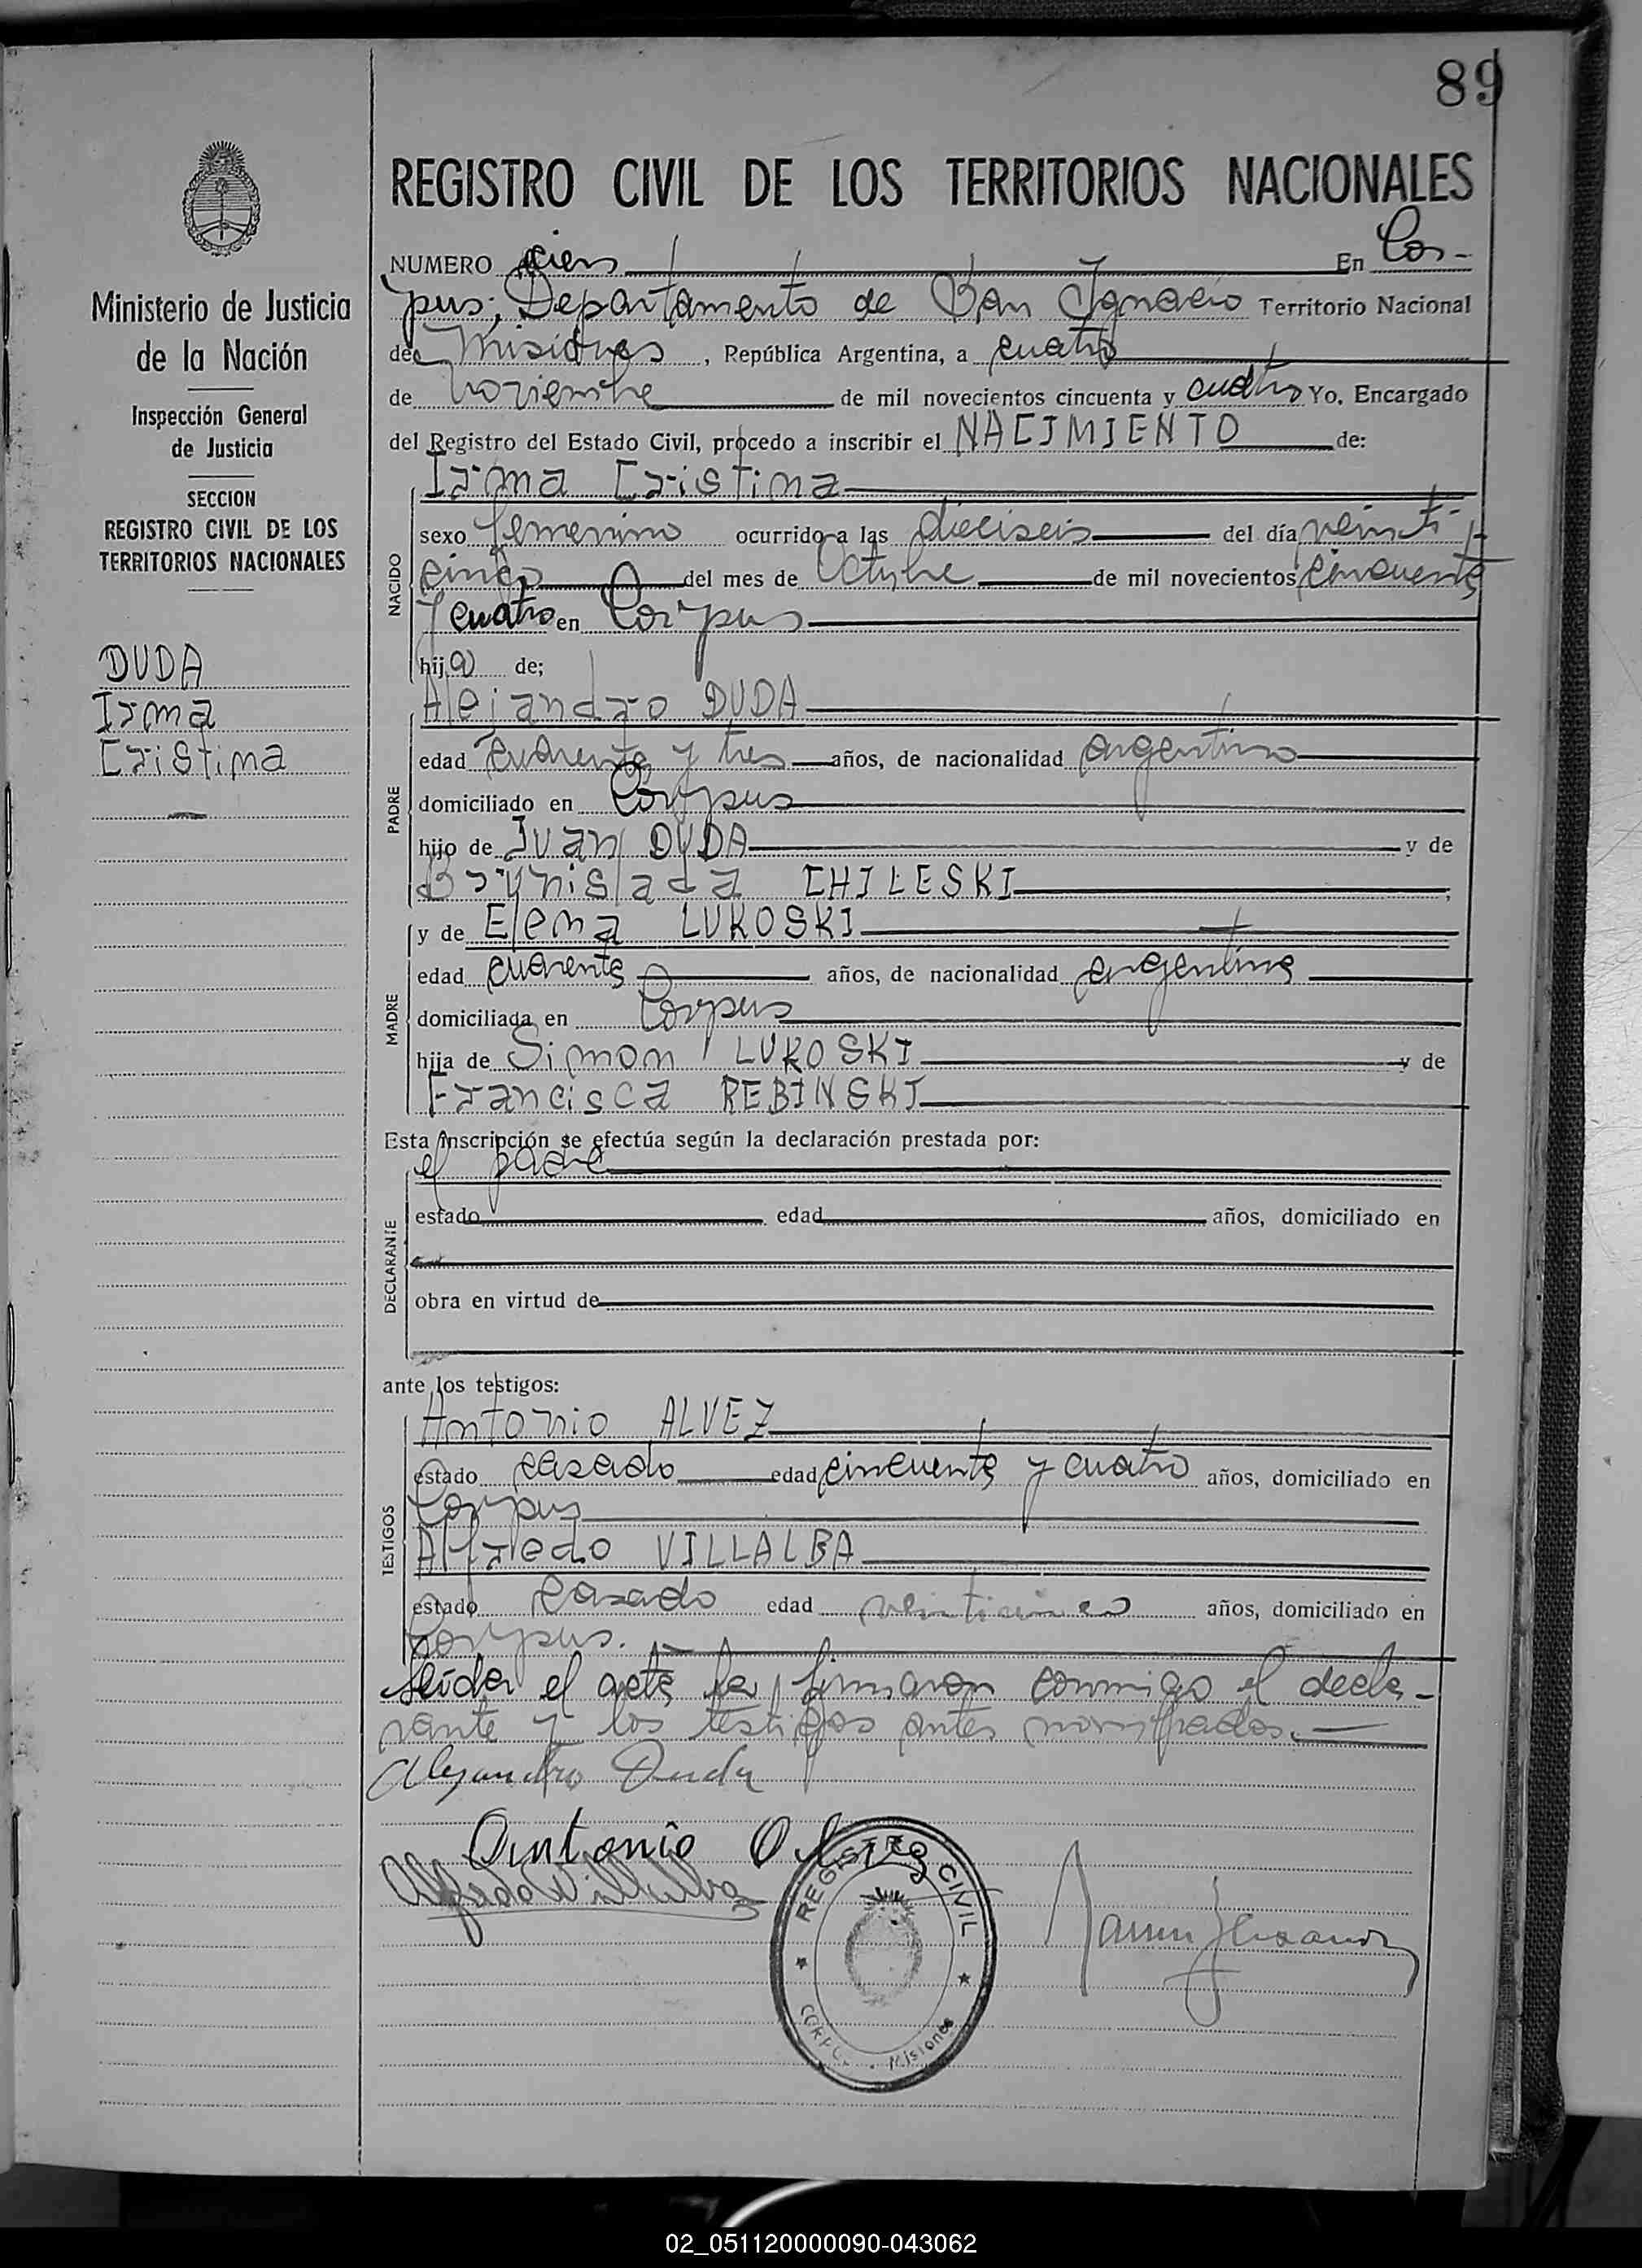 89
REGISTRO CIVIL DE LOS TERRITORIOS NACIONALES
Ministerio de Justicia
de la Nación
Inspección General
de Justicia
SECCION
REGISTRO CIVIL DE LOS
TERRITORIOS NACIONALES
DUDA
Irma
Cristina
NUMERO cien En Cor-
pus; Departamento de San Ignacio Territorio Nacional
de Misiones, República Argentina, a cuatro
de noviembre de mil novecientos cincuenta y cuatro Yo, Encargado
del Registro del Estado Civil, procedo a inscribir el NACIMIENTO de:
NACIDO
Irma Cristina
sexo femenino ocurrido a las dieciseis del día veinti-
cinco del mes de Octubre de mil novecientos cincuenta
y cuatro en Corpus
hija de;
PADRE
Alejandro DUDA
edad cuarenta y tres años, de nacionalidad argentino
domiciliado en Corpus
hijo de Juan DUDA y de
CHILESKI;
MADRE
y de Elena LUKOSKI
edad cuarenta años, de nacionalidad argentina
domiciliada en Corpus
hija de Simon LUKOSKI y de
Francisca REBINSKI
Esta inscripción se efectúa según la declaración prestada por:
DECLARANTE
el padre
estado edad años, domiciliado en
obra en virtud de
ante los testigos:
TESTIGOS
Antonio ALVEZ
estado casado edad cincuenta y cuatro años, domiciliado en
Corpus
Alfredo VILLALBA
estado casado edad veinticinco años, domiciliado en
Corpus.
Leída el acta la firmaron conmigo el decla-
rante y los testigos antes nombrados.
Alejandro Duda
Antonio
Alfredo Villalba
REGISTRO CIVIL
CORPUS - Misiones
02_051120000090-043062